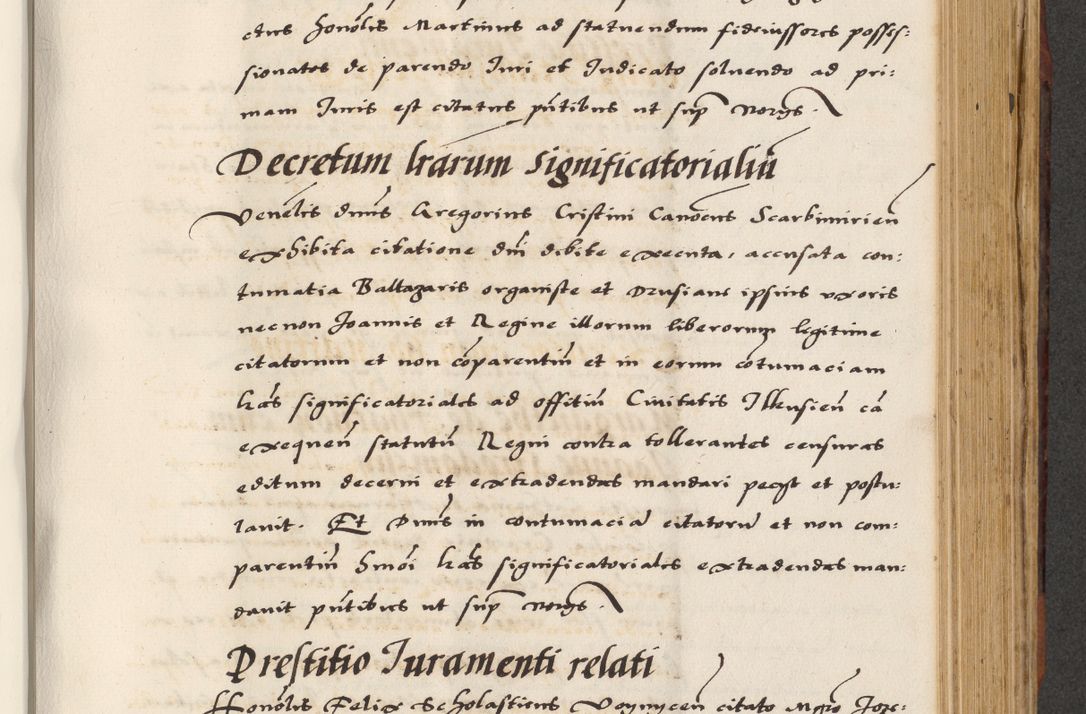 ctus Honołis Martinus ad statuendum fideiussores posses:
sionatos de parendo Iuri et Iudicato soluendo ad pri:
mam Iuris est citatus pñtibus ut sup̃ Nor̃gs.
Decretum lrarum significatorialiũ
Venełis dñus Gregorius Cristini Canoñcus Scarbimirieñ
exhibita citatione dñi debite executa, accusata con:
tumatia Baltazaris organiste et Drusiane ipsius uxoris
necnon Joannis et Regine illorum liberorum legitime
citatorum et non cõparentiũ et in eorum cõtumaciam
lrãs significatoriales ad offitiũ Ciuitatis Ilkusieñ cã
exequeñ statutũ Regni contra tollerantes censuras
editum decerni et extradendas mandari pecyt et postu:
lauit. Et Dñus in contumaciã citatorũ et non com:
parentiũ hmõi lrãs significatoriales extradendas man:
dauit pñtibus ut sup̃ nor̃gs.
Prestitio Iuramenti relati
Honołis Felix Scholasticus Voynyceñ citato Mgrõ Jore: